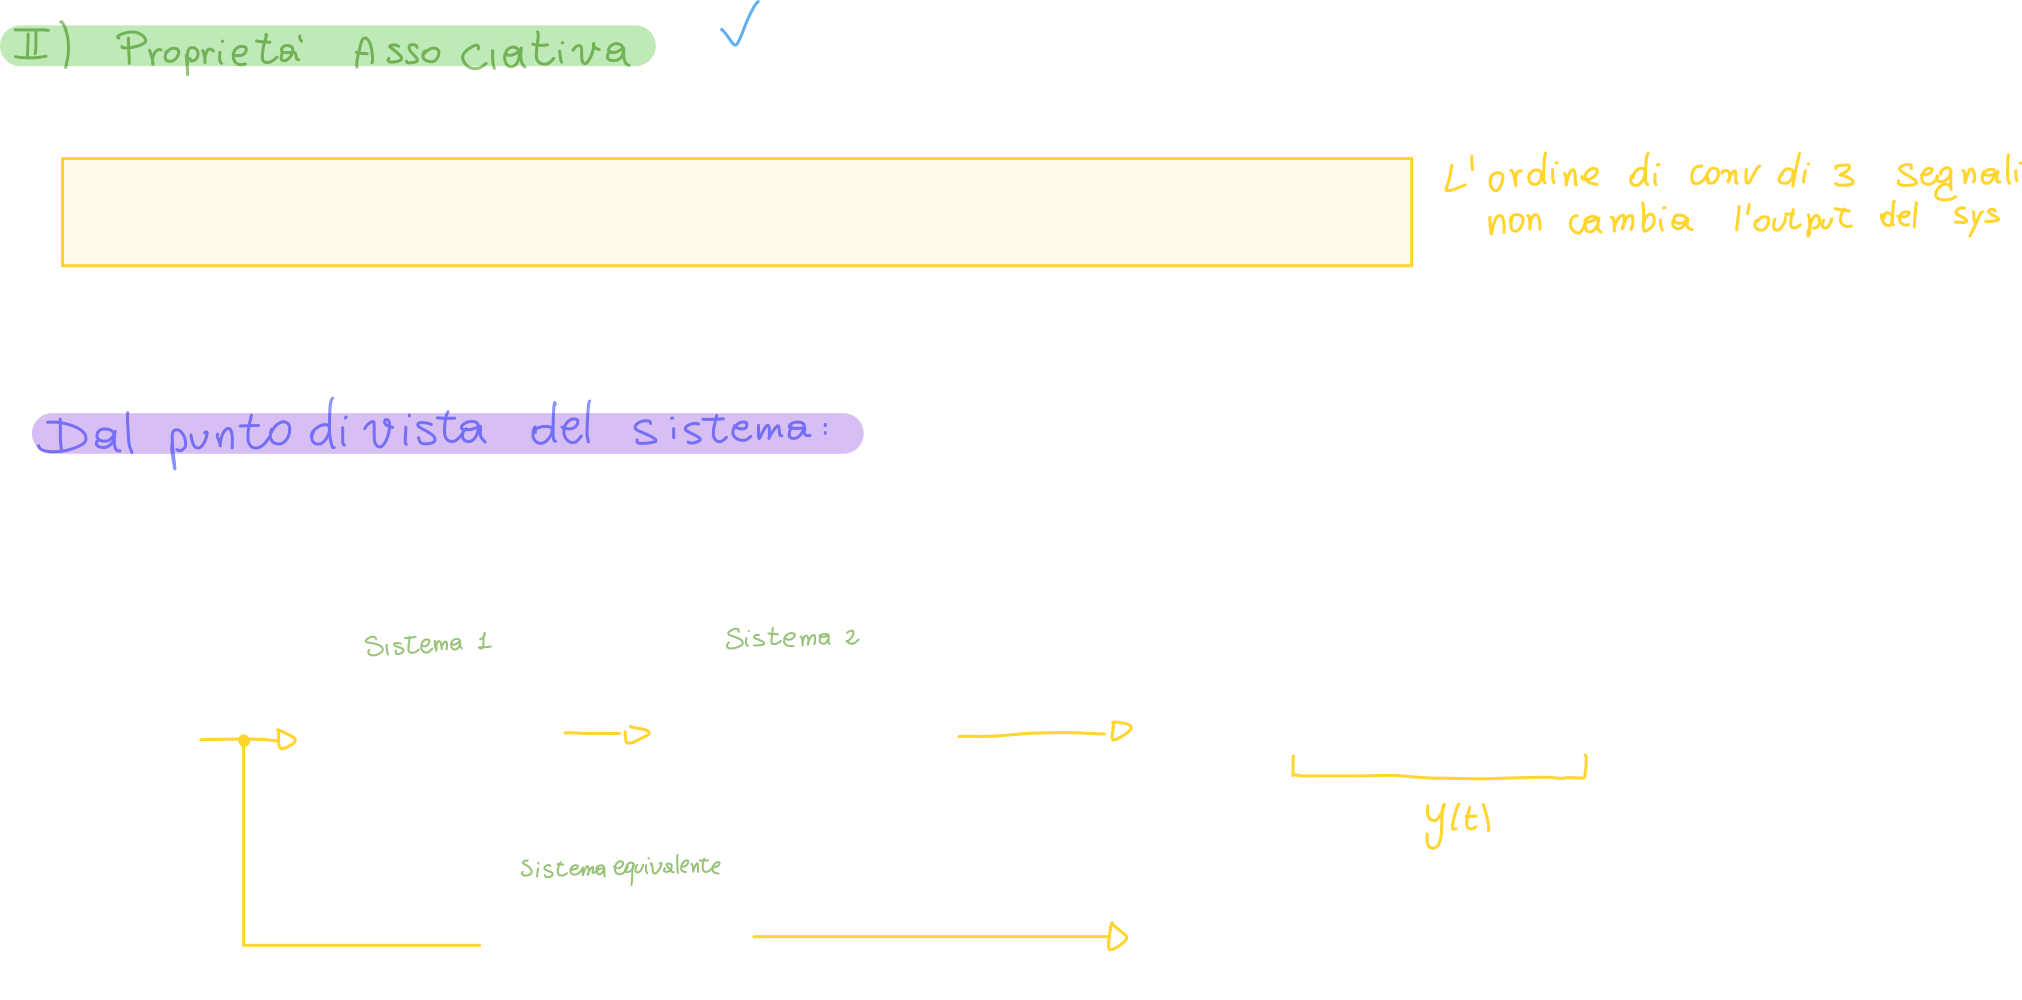 II) Proprietà Associativa
L'ordine di conv di 3 segnali
non cambia l'output del sys
Dal punto di vista del sistema:
Sistema 1
Sistema 2
y(t)
Sistema equivalente